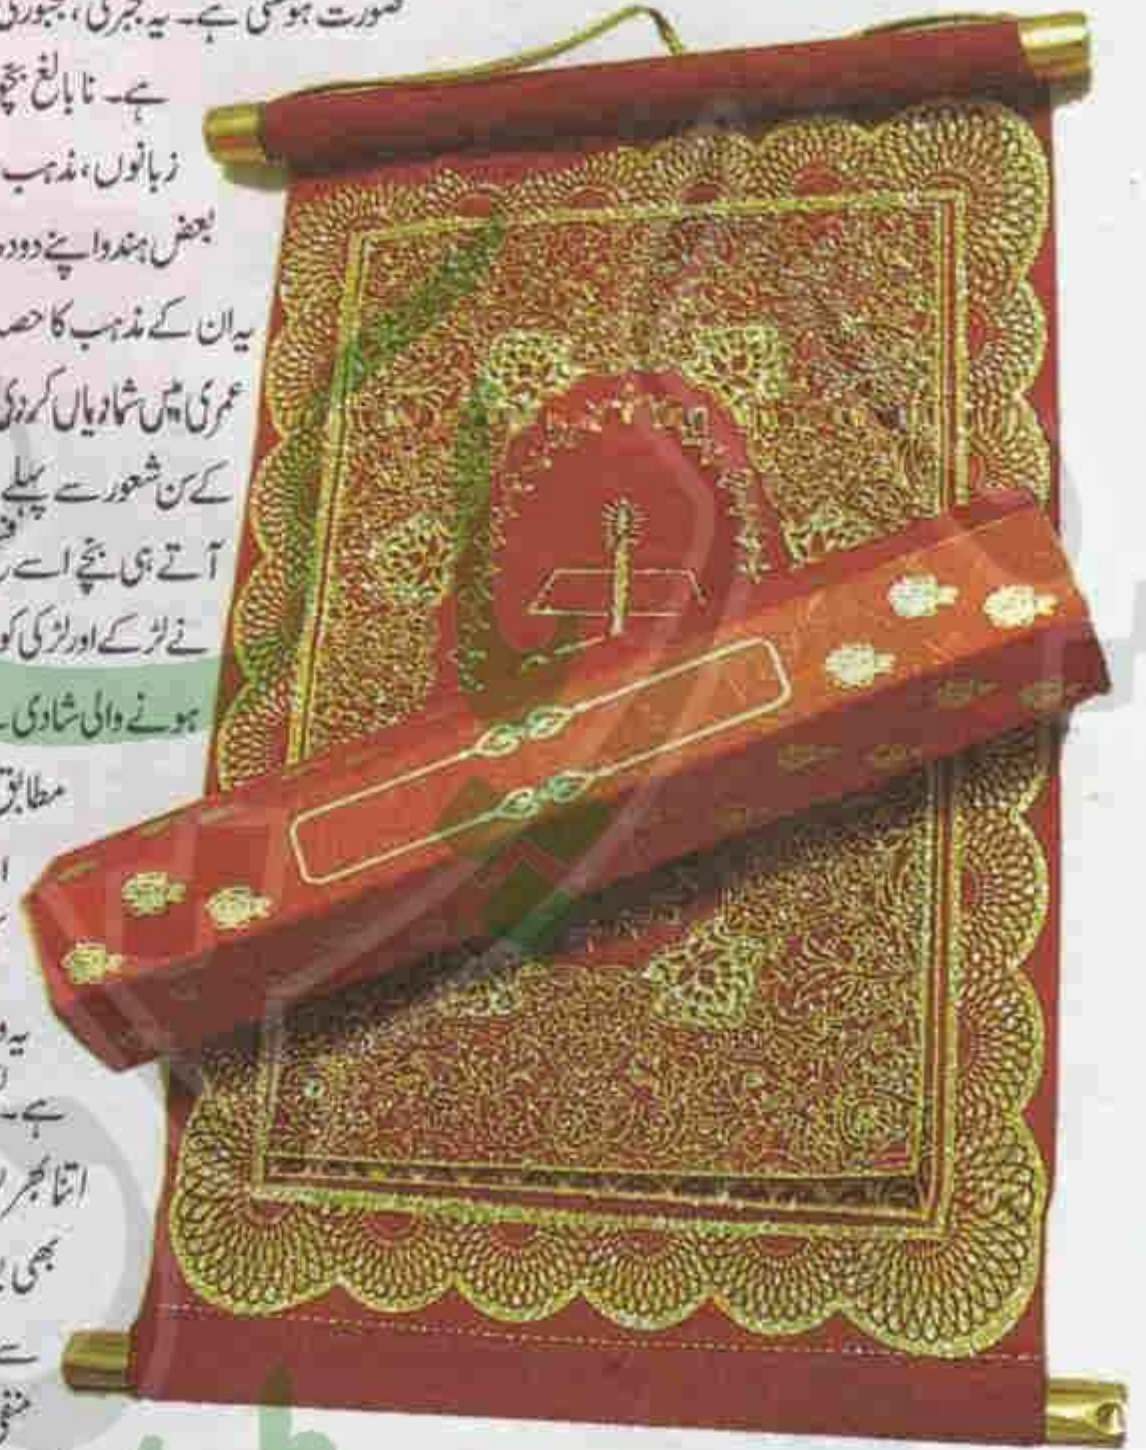 صورت ہوسکتی ہے۔ یہ جبری، مجبوری
ہے۔ نابالغ بچو
زبانوں، مذہب
بعض ہندو اپنے دودھ
یہ ان کے مذہب کا حصہ
عمری میں شادیاں کردی
کے سن شعور سے پہلے
آتے ہی بچے اسے
نے لڑکے اور لڑکی کو
ہونے والی شادی
مطابق
یہ
ہے۔
اتنا بھر
بھی
سے
منفی